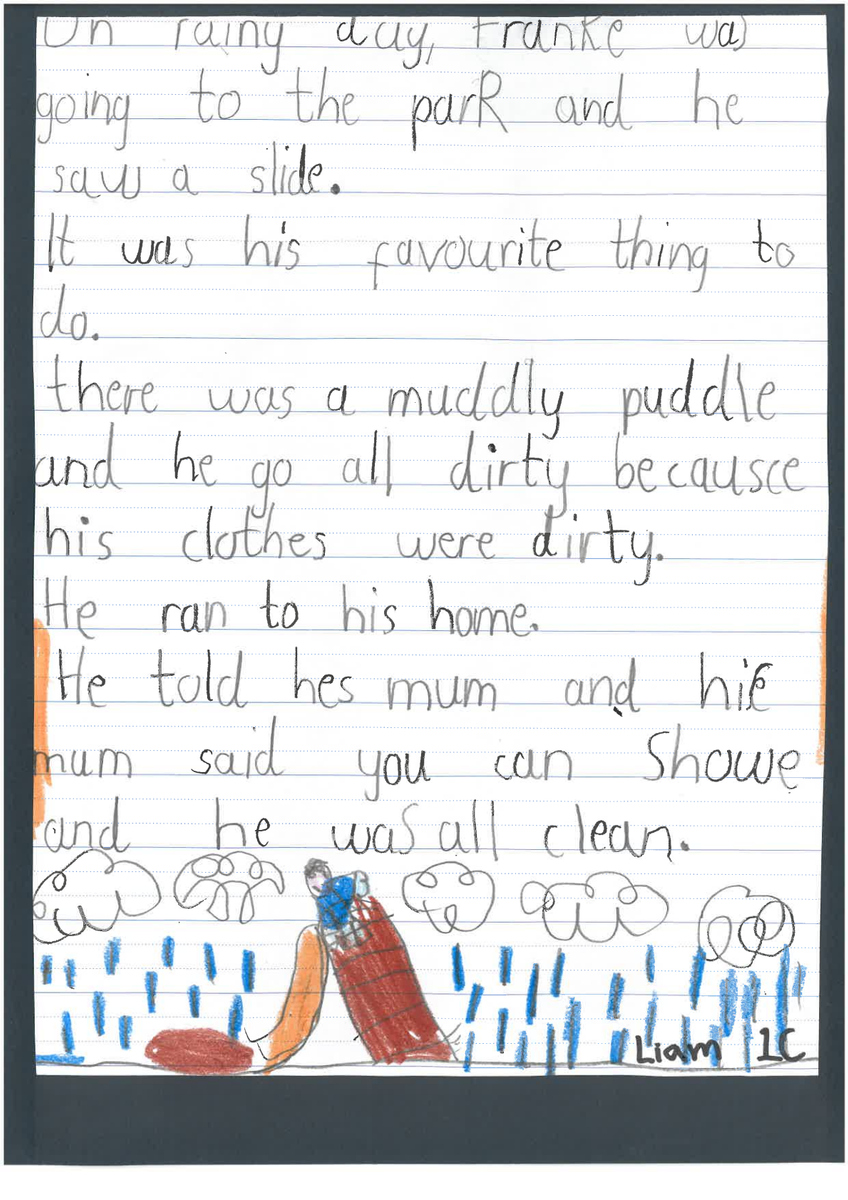 On rainy day, Franke was
going to the park and he
saw a slide.
It was his favourite thing to
do.
there was a muddly puddle
and he go all dirty becausce
his clothes were dirty.
He ran to his home.
He told hes mum and his
mum said you can Showe
and he was all clean.
Liam 1C